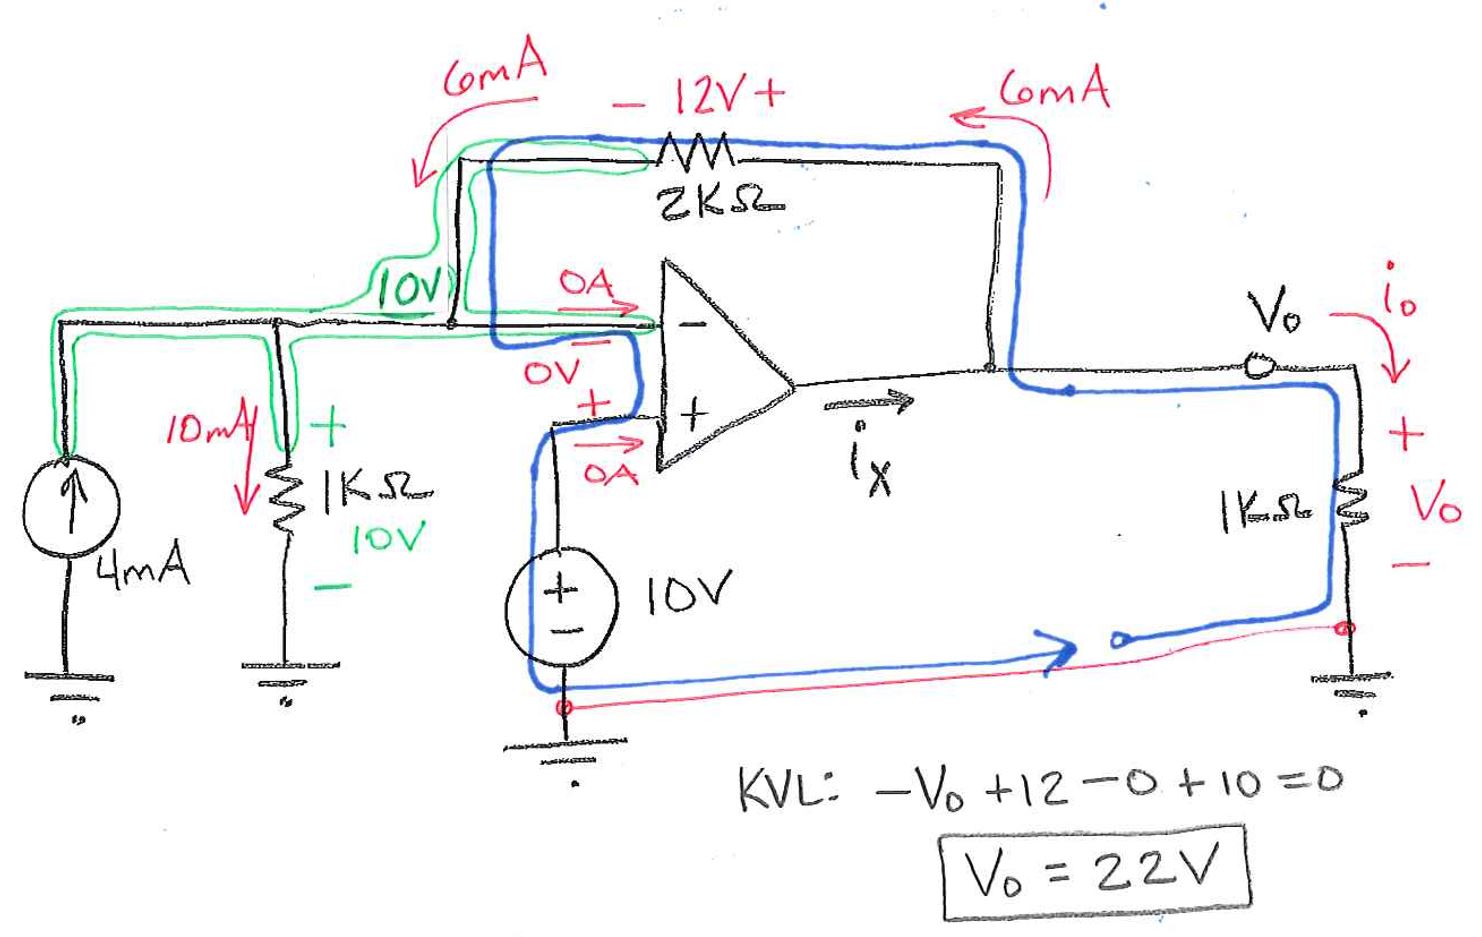 6mA
− 12V +
6mA
2KΩ
10V
0A
−
−
0V
+
+
0A
Vo
io
ix
10mA
+
1KΩ
10V
−
4mA
+
−
10V
1KΩ
+
Vo
−
KVL: −Vo + 12 − 0 + 10 = 0
Vo = 22V